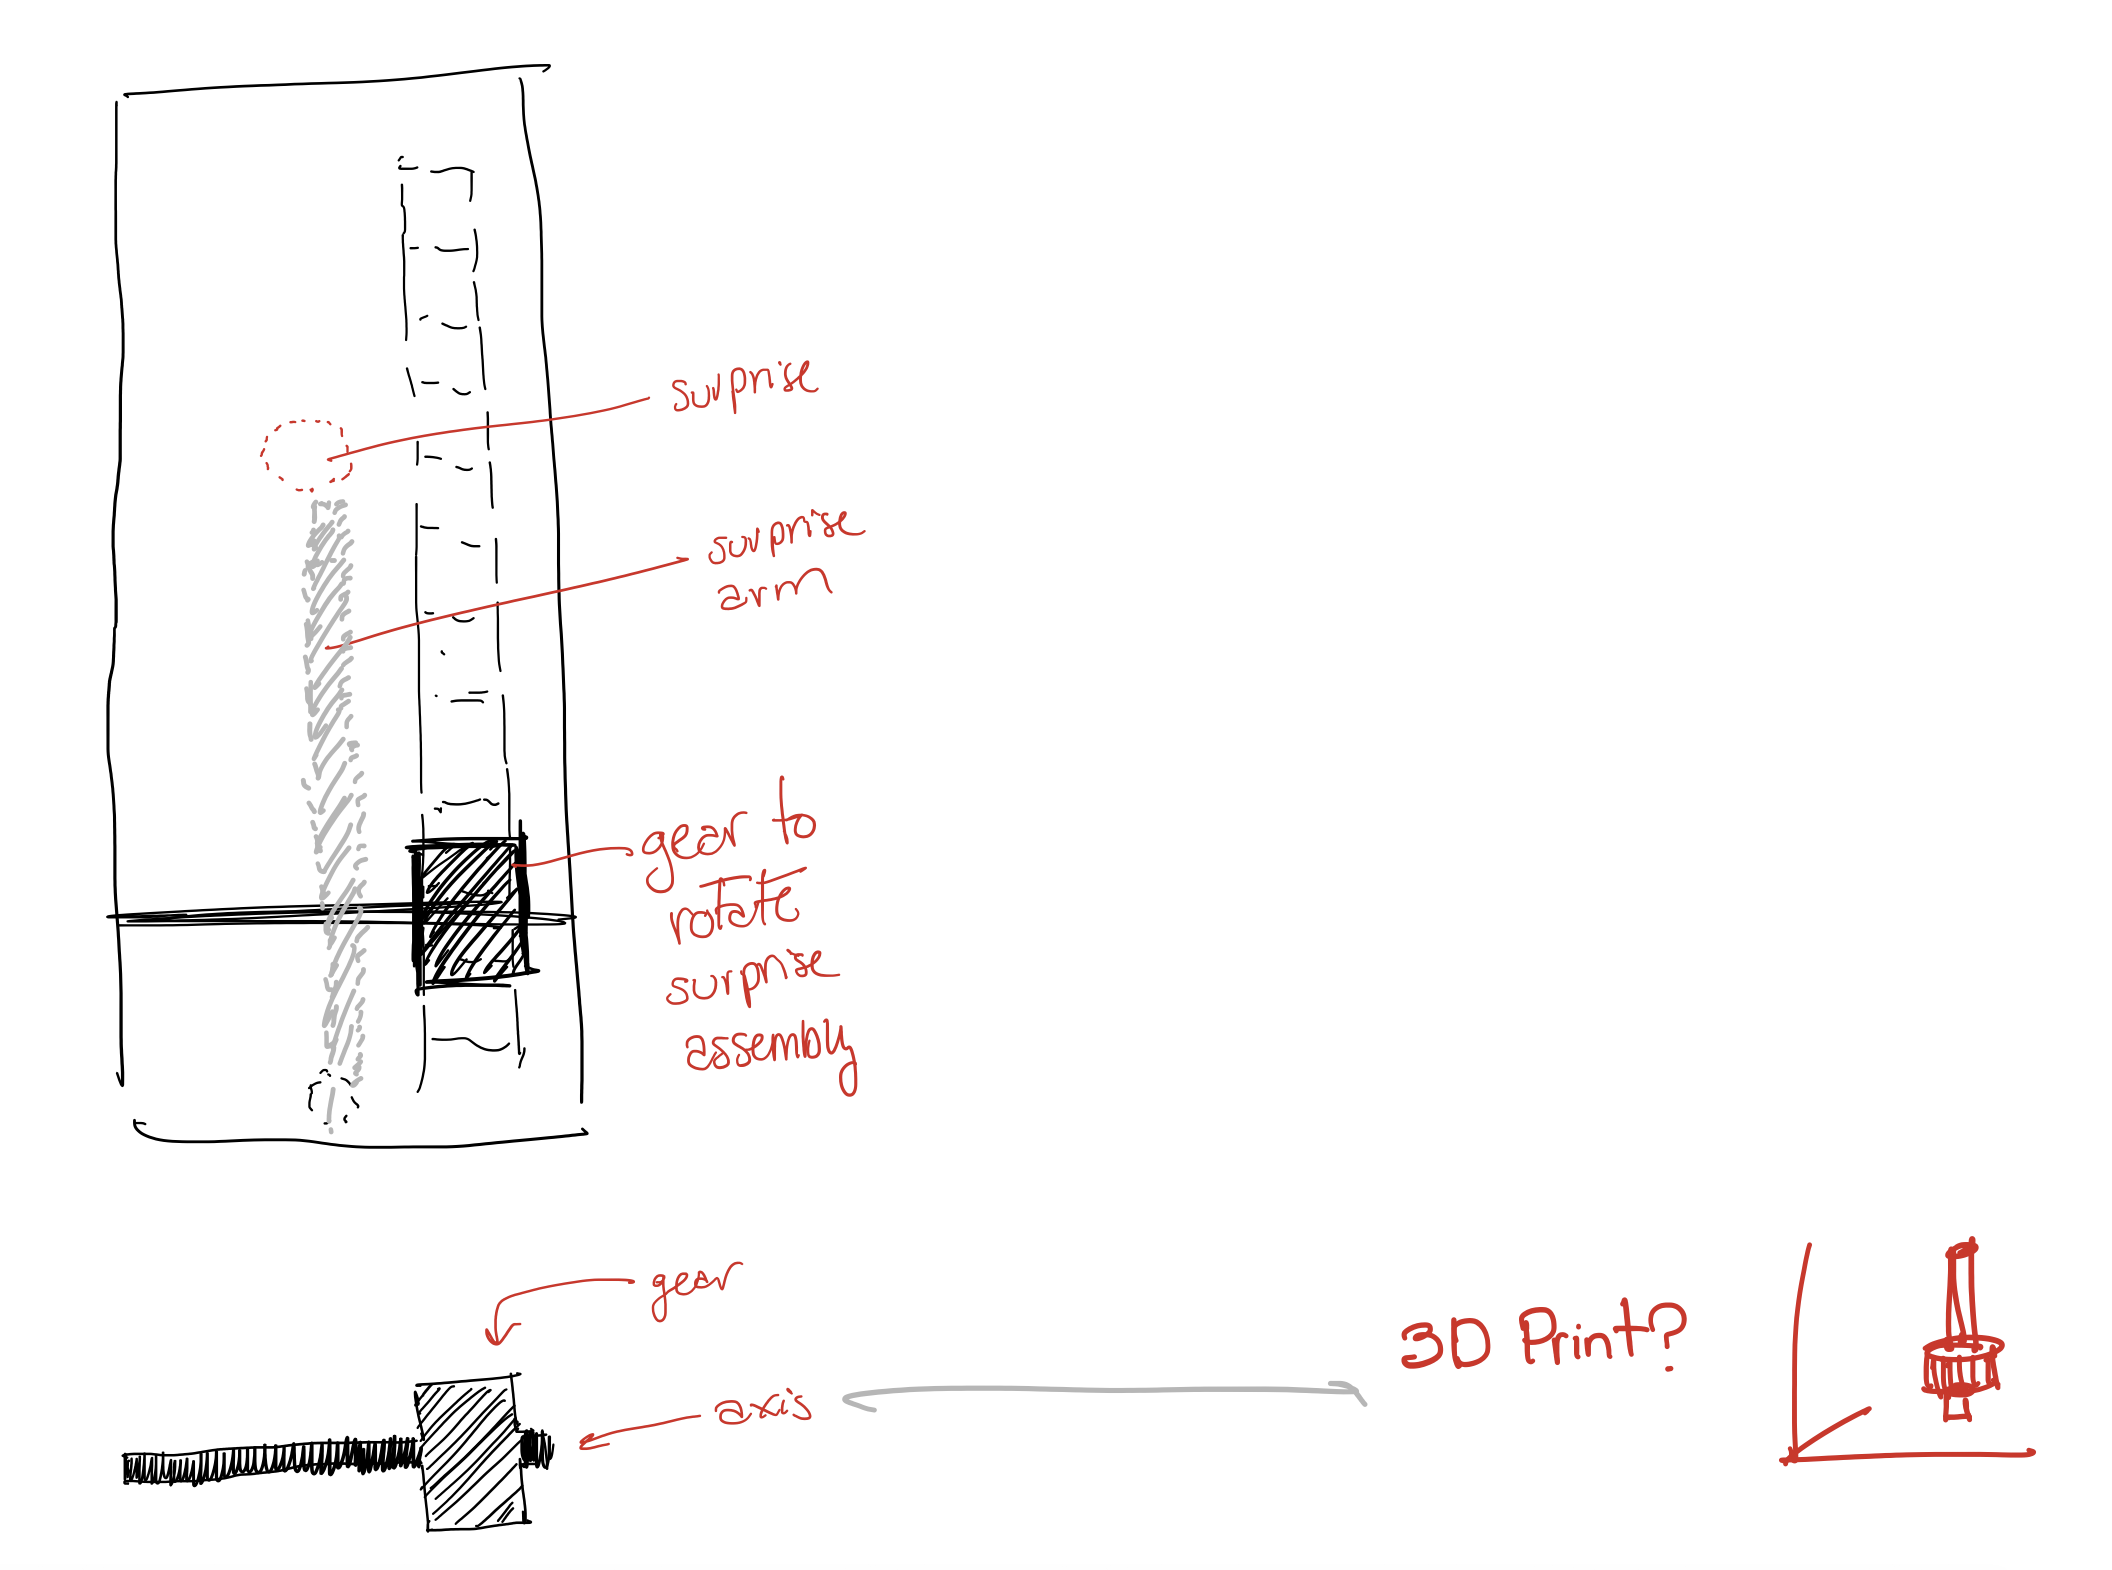 surprise
surprise
arm
gear to
rotate
surprise
assembly
gear
axis
3D Print?